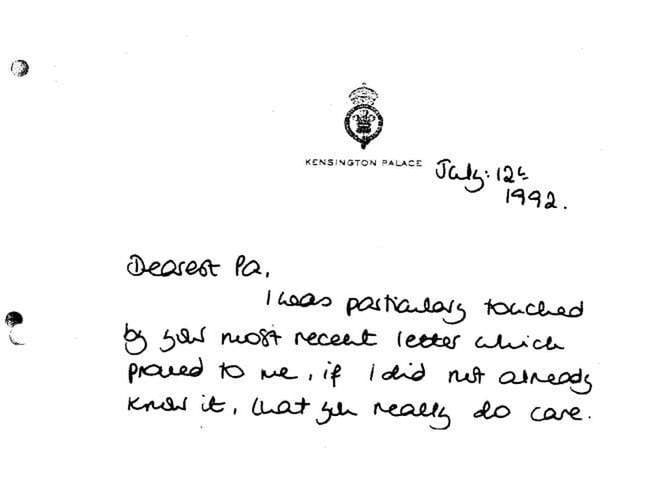 KENSINGTON PALACE
July: 12th
1992.
Dearest Pa,
I was particulary touched
by your most recent letter which
proved to me, if I did not already
know it, that you really do care.